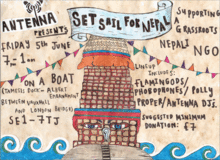 ANTENNA
PRESENTS
SET SAIL FOR NEPAL
SUPPORTING
A
GRASSROOTS
NEPALI
NGO
FRIDAY 5TH JUNE
7-1am
ON A BOAT
(TAMESIS DOCK - ALBERT
EMBANKMENT)
BETWEEN VAUXHALL
AND LONDON BRIDGE)
SE1-7TJ
LINEUP
INCLUDES:
FLAMINGODS/
PHOBOPHONES/POLLY
PROPER/ANTENNA DJS.
SUGGESTED MINIMUM
DONATION: £7